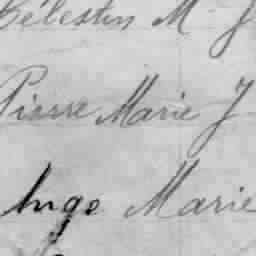 Célestin M J
Pierre Marie J
Ange Marie